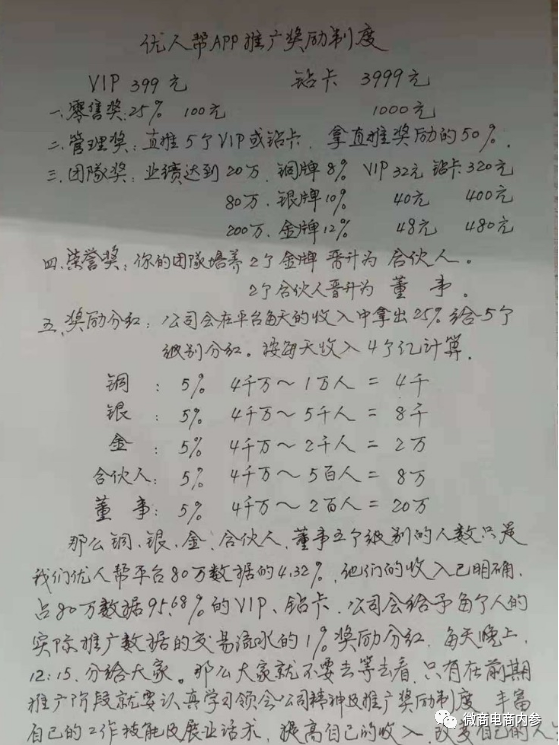 优人帮APP推广奖励制度
VIP 399元 钻卡 3999元
一.零售奖.25% 100元 1000元
二.管理奖:直推5个VIP或钻卡.拿直推奖励的50%.
三.团队奖.业绩达到20万.铜牌8% VIP32元 钻卡320元
80万.银牌10% 40元 400元
200万.金牌12% 48元 480元
四.荣誉奖:你的团队培养2个金牌晋升为合伙人。
2个合伙人晋升为董事。
五.奖励分红:公司会在平台每天的收入中拿出25%给5个
级别分红。按每天收入4个亿计算.
铜:5% 4千万~1万人=4千
银:5% 4千万~5千人=8千
金:5% 4千万~2千人=2万
合伙人:5% 4千万~5百人=8万
董事:5% 4千万~2百人=20万
那么铜、银、金、合伙人、董事五个级别的人数只是
我们优人帮平台80万数据的4.32%.他们的收入已明确.
占80万数据95.68%的VIP、钻卡.公司会给予每个人的
实际推广数据的交易流水的1%奖励分红.每天晚上.
12:15.分给大家。那么大家就不要去等去看.只有在前期
推广阶段就要认真学习领会公司精神及推广奖励制度.丰富
自己的工作技能及展业话术.提高自己的收入.改变自己的人
微商电商内参